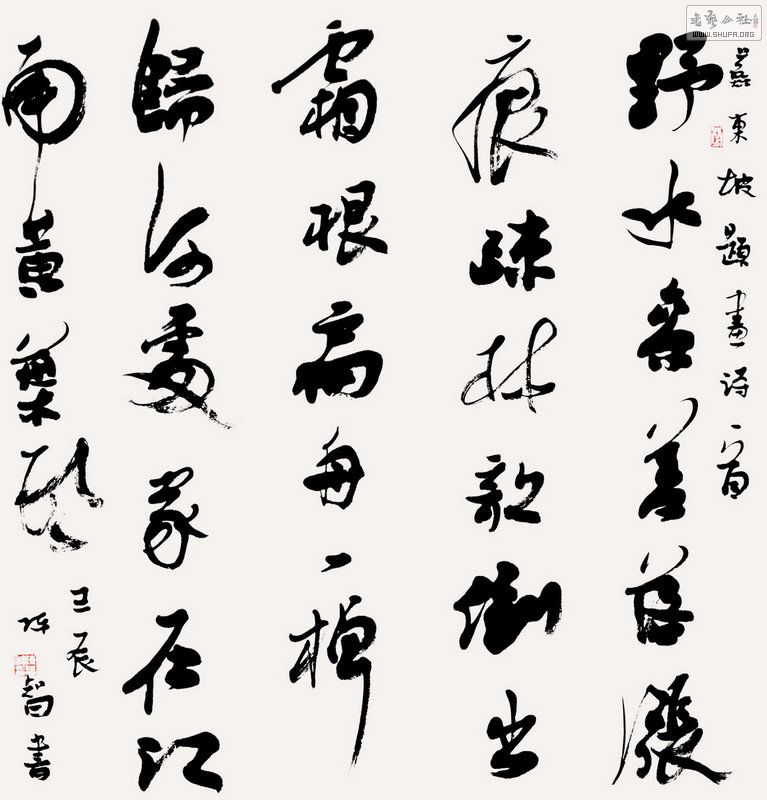 蘇東坡題畫詩一首
野水參差落漲
痕疎林欹倒出
霜根扁舟一棹
歸何處家在江
南黃葉邨
壬辰
陳智書
書藝公社
WWW.SHUFA.ORG